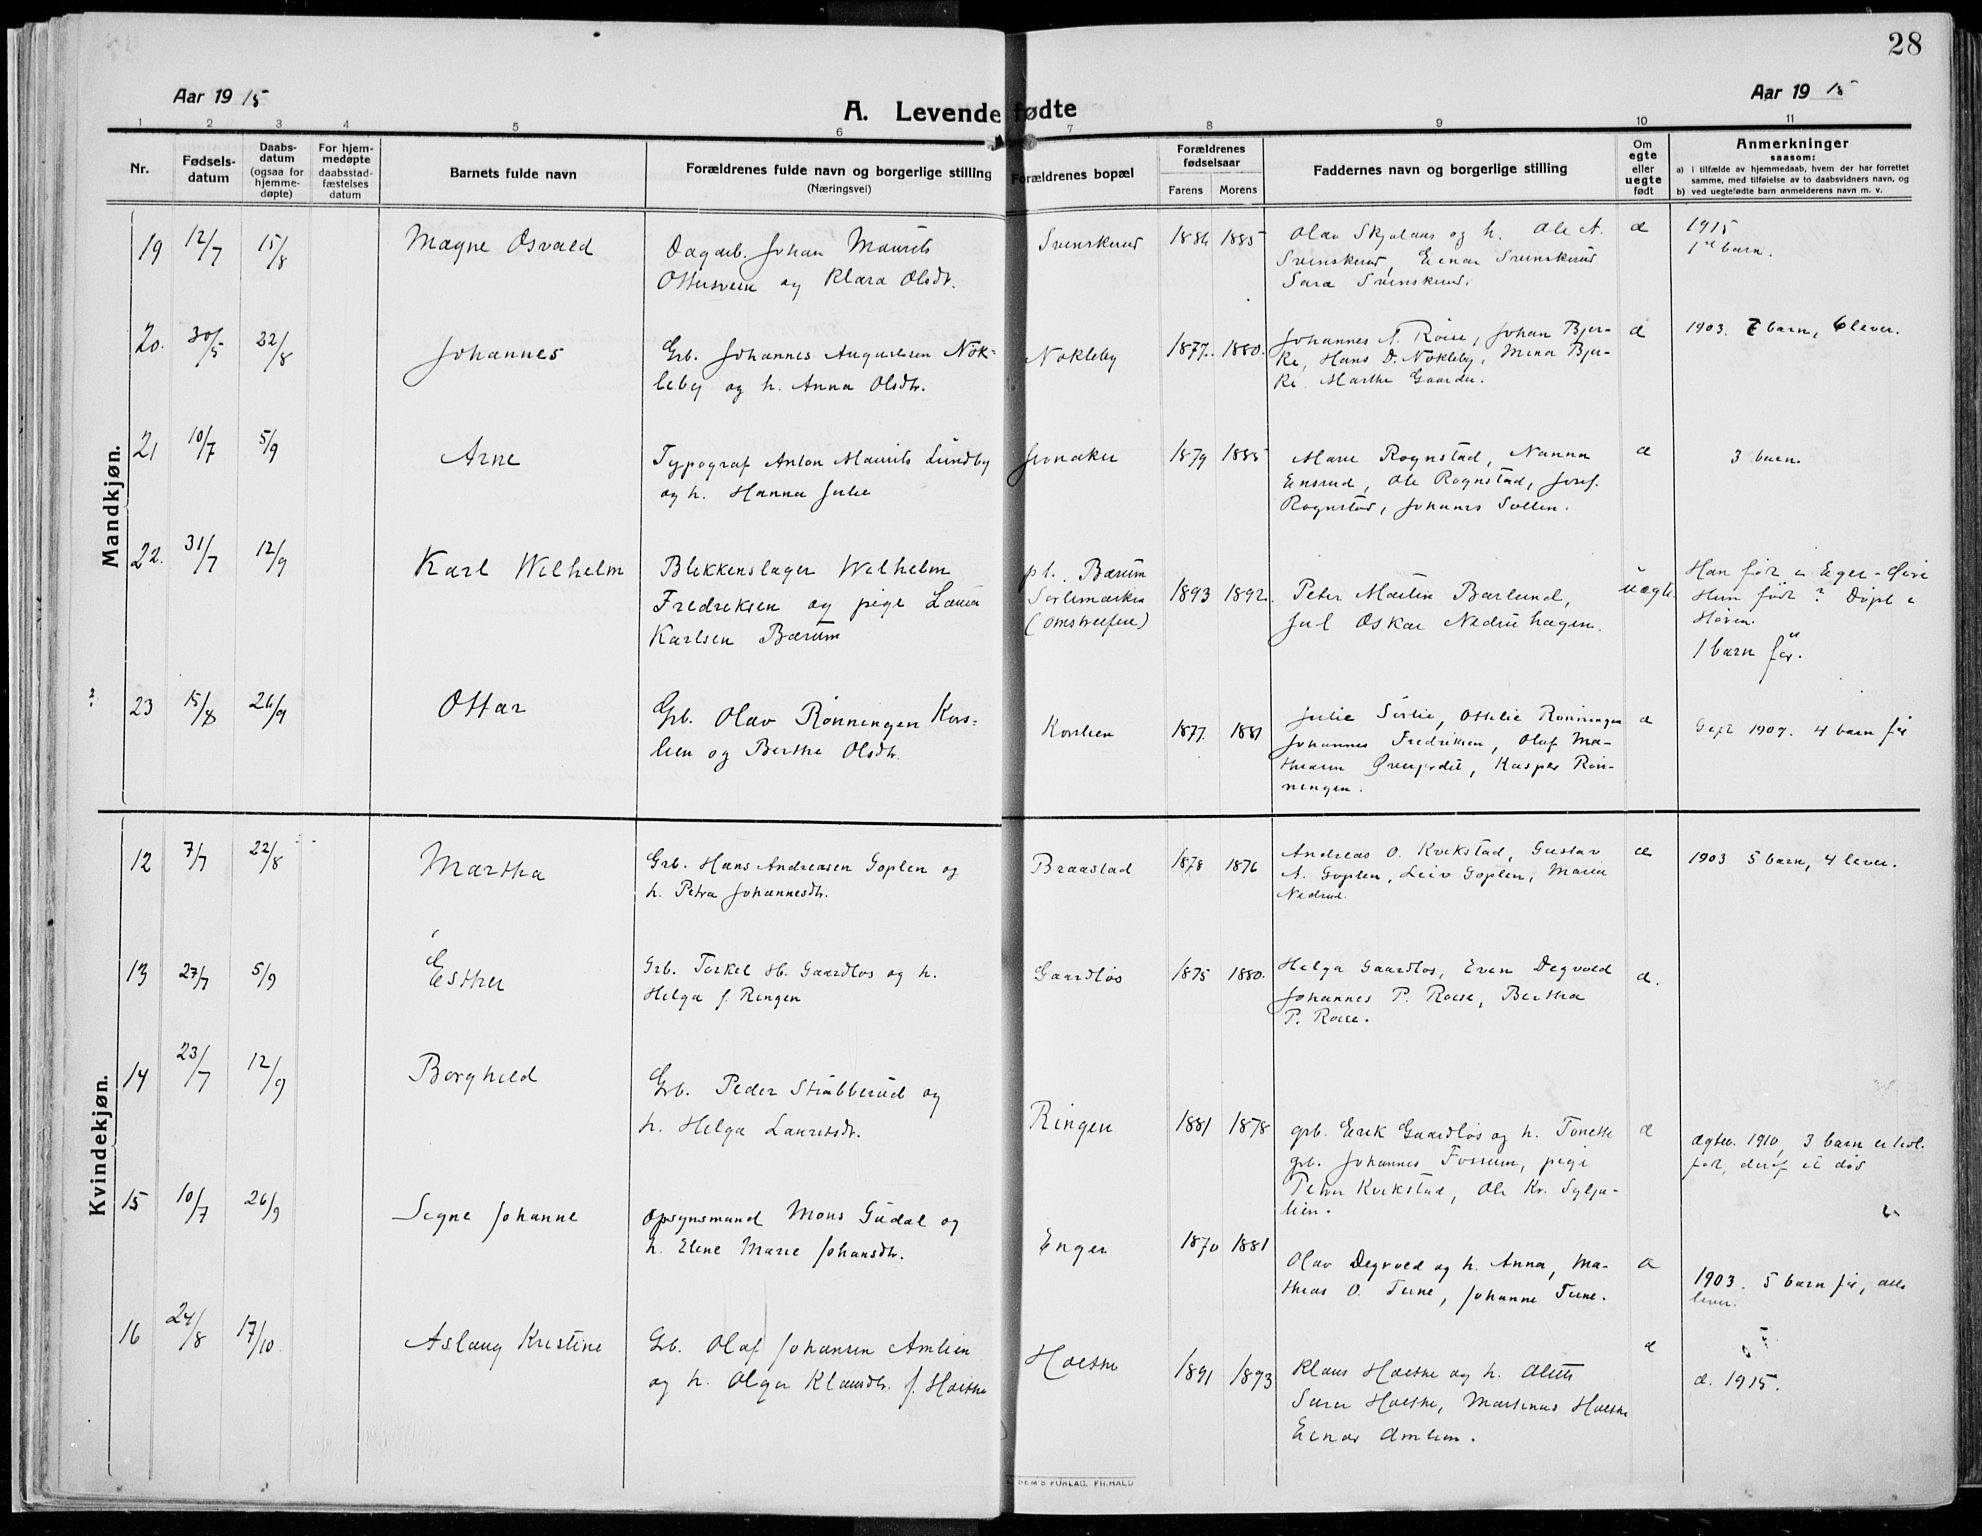 28
Aar 1915
A. Levende fødte
Aar 1915
1 2 3 4 5 6 7 8 9 10 11
Nr.
Fødsels-
datum
Daabs-
datum
(ogsaa for
hjemme-
døpte)
For hjem-
medøpte
daabsstad-
fæstelses
datum
Barnets fulde navn
Forældrenes fulde navn og borgerlige stilling
(Næringsvei)
Forældrenes bopæl
Forældrenes
fødselsaar
Farens Morens
Faddernes navn og borgerlige stilling
Om
egte
eller
uegte
født
Anmerkninger
saasom:
a) i tilfælde av hjemmedaab, hvem der har forrettet
samme, med tilføielse av to daabsvidners navn, og
b) ved uegtefødte barn anmelderens navn m. v.
Mandkjøn.
19 12/7 15/8 Magne Osvald
Dagarb. Johan Maurits
Ottersveen og Klara Olsdt.
Svenskerud 1886 1885
Olav Skjølaas og h. Ole A.
Svenskerud, Einar Svenskerud
Sara Svenskerud.
1915
1ste barn.
20. 30/5 22/8 Johannes
Grb. Johannes Augustsen Nøk-
leby og h. Anna Olsdt.
Nøkleby 1877. 1880.
Johannes A. Roise, Johan Bjer-
ke, Hans D. Nøkleby, Mina Bjer-
ke. Marthe Gaarder.
1903. 7 barn, 6 lever.
21 10/7 5/9 Arne
Typograf Anton Maurits Lundby
og h. Hanna Julie
Jevnaker 1879 1885
Marie Rognstad, Nanna
Ensrud, Ole Rognstad, Josef
Rognstad, Johanes Sollien.
3 barn.
22. 31/7 12/9 Karl Wilhelm
Blikkenslager Wilhelm
Fredriksen og pige Laura
Karlsen Bærum
pt. Bærum
Sørlimarken
(omstreifere)
1893 1892.
Peter Martin Bærlund,
Jul Oskar Nedre Hagen.
uegte.
Han født i Eger-Øvre
Hun født? Døpt i
Hoven.
1 barn før.
23 15/8 26/9 Ottar
Grb. Olav Rønningen Kors-
lien og Berthe Olsdt.
Korslien 1877. 1881
Julie Sørlie, Ottilie Rønningen
Johannes Fredriksen, Olaf Ma-
thisen Øvergaardet, Kasper Røn-
ningen.
Gift 1907. 4 barn før
Kvindekjøn.
12 7/7 22/8 Martha
Grb. Hans Andreasen Goplen og
h. Petra Johannesdt.
Braastad 1878 1876
Andreas O. Kvikstad, Gustav
A. Goplen, Leiv Goplen, Maria
Nedrud.
1903 5 barn, 4 lever.
13 27/7 5/9 Esther
Grb. Torkel H. Gaardløs og h.
Helga f. Ringen
Gaardløs 1875 1880.
Helga Gaardløs, Even Degvold
Johannes P. Roise, Bertha
P. Roise.
14 23/7 12/9 Borghild
Grb. Peder Strubberud og
h. Helga Lauritsdt.
Ringen 1881 1878
grb. Erik Gaardløs og h. Tonette
grb. Johannes Fossum, pige
Petra Kvikstad, Ole Kr. Sylju-
lien.
ægtev. 1910, 3 barn er levl.
født, deraf et død
15 10/7 26/9 Signe Johanne
Opsynsmand Mons Gudal og
h. Eline Marie Johansdt.
Enger 1870 1881
Olav Degvold og h. Anna, Ma-
thias O. Tune, Johanne Tune.
1903. 5 barn før, alle
lever.
16 24/8 17/10. Aslaug Kristine
Grb. Olaf Johansen Amlien
og h. Olga Klausdt. f. Holthe
Holthe 1891 1893
Klaus Holthe og h. Olette
Saren Holthe, Martinus Holthe
Einar Amlien.
1915.